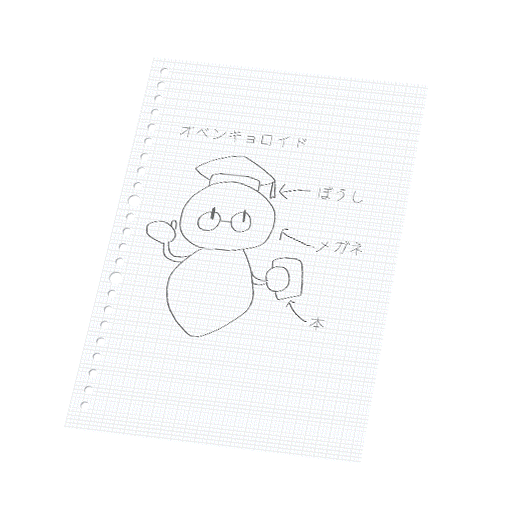 オベンキョロイド
ぼうし
メガネ
本